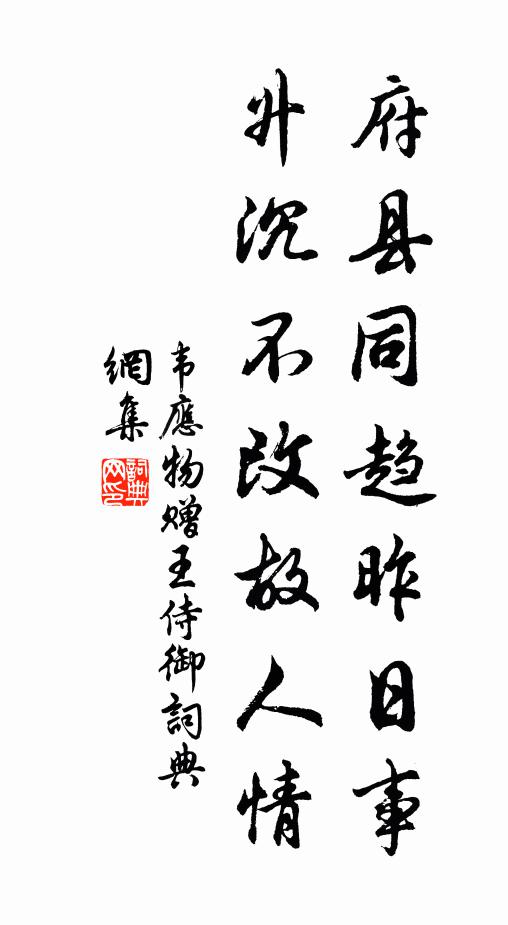 府县同趋昨日事
升沉不改故人情
韦應物赠王侍御詞典
網集
詞典
网印